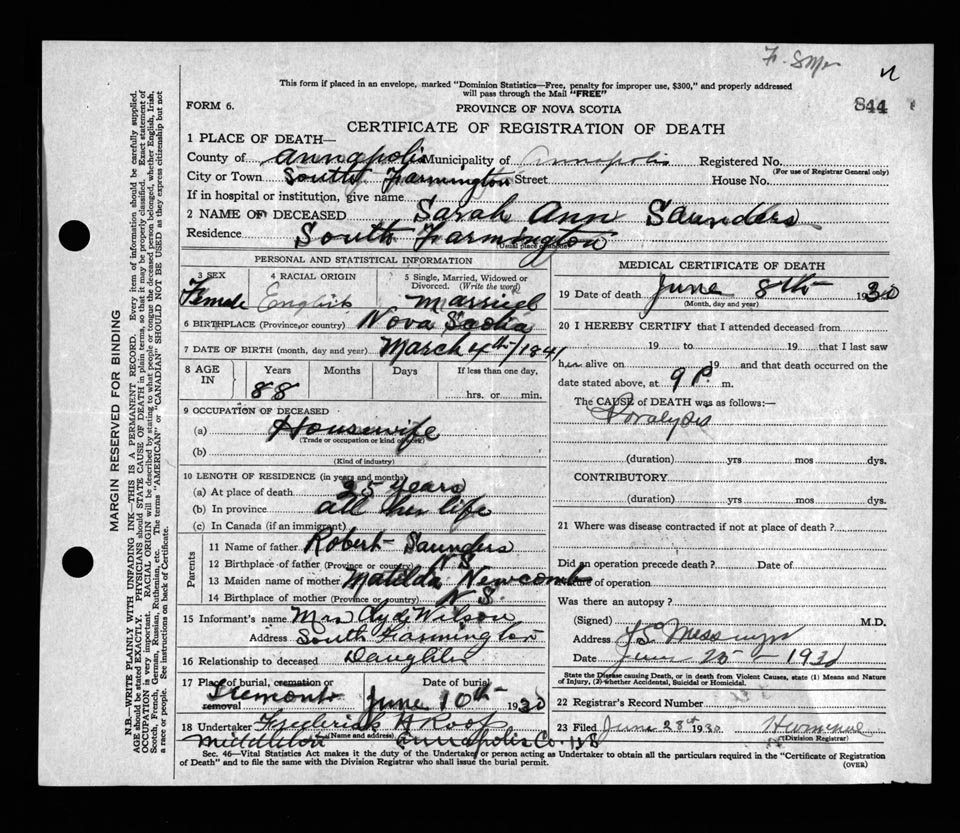 F. Sme
This form if placed in an envelope, marked "Dominion Statistics—Free, penalty for improper use, $300," and properly addressed
will pass through the Mail "FREE"
FORM 6.
PROVINCE OF NOVA SCOTIA
844
CERTIFICATE OF REGISTRATION OF DEATH
1 PLACE OF DEATH—
County of Annapolis Municipality of Annapolis Registered No.
(For use of Registrar General only)
City or Town South Farmington Street House No.
If in hospital or institution, give name
2 NAME OF DECEASED Sarah Ann Saunders
Residence South Farmington
PERSONAL AND STATISTICAL INFORMATION
3 SEX 4 RACIAL ORIGIN 5 Single, Married, Widowed or
Divorced. (Write the word)
Female English Married
6 BIRTHPLACE (Province, or country) Nova Scotia
7 DATE OF BIRTH (month, day and year) March 4th/1841
8 AGE IN Years Months Days If less than one day,
88 hrs. or min.
9 OCCUPATION OF DECEASED
(a) Housewife
(Trade or occupation or kind of work)
(b)
(Kind of industry)
10 LENGTH OF RESIDENCE (in years and months)
(a) At place of death 25 years
(b) In province all her life
(c) In Canada (if an immigrant)
Parents
11 Name of father Robert Saunders
12 Birthplace of father (Province or country) N S
13 Maiden name of mother Matilda Newcomb
14 Birthplace of mother (Province or country) N S.
15 Informant's name Mrs Clyd Wilson
Address South Farmington
16 Relationship to deceased Daughter
17 Place of burial, cremation or removal Date of burial
Tremont June 10th 1930
18 Undertaker Frederick A Roop
(Name and address)
Middleton Annapolis Co. N S
MEDICAL CERTIFICATE OF DEATH
19 Date of death June 8th 1930
(Month, day and year)
20 I HEREBY CERTIFY that I attended deceased from
19 to 19 that I last saw
her alive on 19 and that death occurred on the
date stated above, at 9 P. m.
The CAUSE of DEATH was as follows:—
Paralysis
(duration) yrs mos dys.
CONTRIBUTORY
(duration) yrs mos dys.
21 Where was disease contracted if not at place of death?
Did an operation precede death? Date of
Nature of operation
Was there an autopsy?
(Signed) M.D.
Address
Date June 25 – 1930
State the Disease causing Death, or in death from Violent Causes, state (1) Means and Nature
of Injury, (2) whether Accidental, Suicidal or Homicidal.
22 Registrar's Record Number
23 Filed June 28th 1930
(Division Registrar)
Sec. 46—Vital Statistics Act makes it the duty of the Undertaker or person acting as Undertaker to obtain all the particulars required in the "Certificate of Registration
of Death" and to file the same with the Division Registrar who shall issue the burial permit.
(OVER)
MARGIN RESERVED FOR BINDING
N.B.—WRITE PLAINLY WITH UNFADING INK—THIS IS A PERMANENT RECORD. Every item of information should be carefully supplied.
AGE should be stated EXACTLY. PHYSICIANS should STATE CAUSE OF DEATH in plain terms, so that it may be properly classified. Exact statement of
OCCUPATION is very important. RACIAL ORIGIN will be described by stating to what people or tongue the deceased person belonged, whether English, Irish,
Scotch, French, German, Russian, Ruthenian, etc. The terms "AMERICAN" or "CANADIAN" SHOULD NOT BE USED as they express citizenship but not
a race or people. See instructions on back of Certificate.